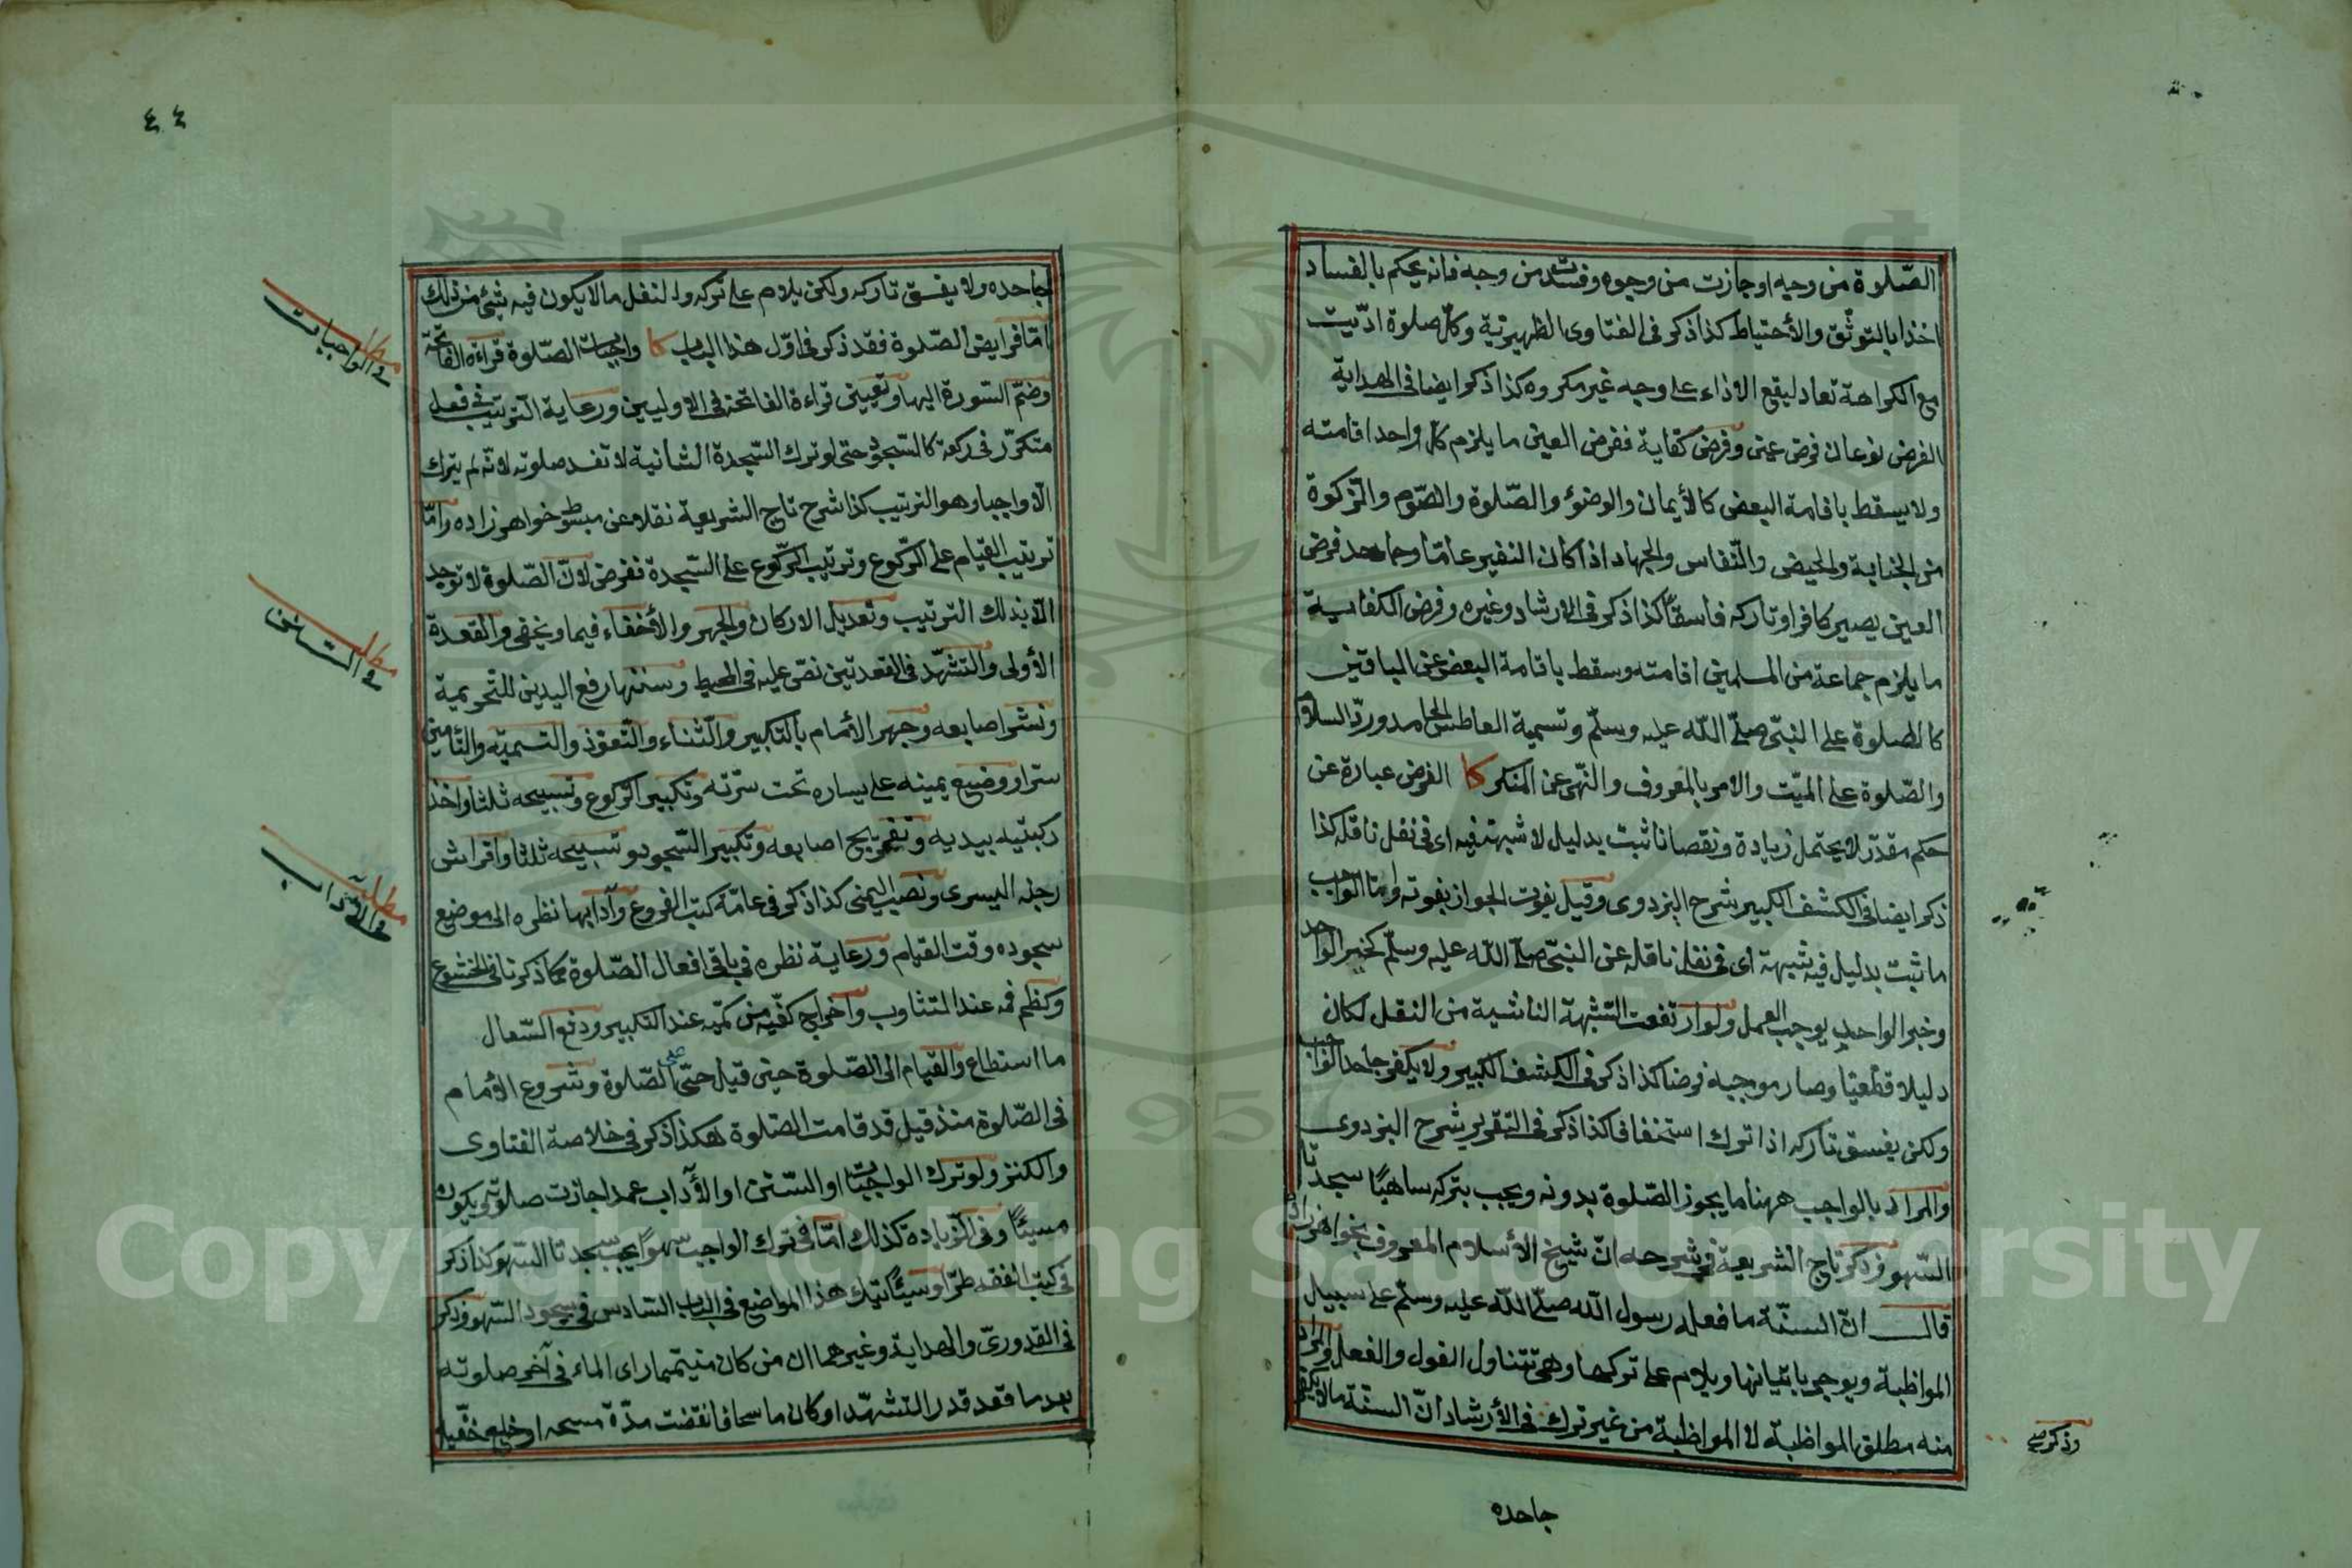 الصّلوة من وجه او جازت من وجوه وفسدت من وجه فانه يحكم بالفساد
اخذا بالتوثّق والأحتياط كذا ذكر فى الفتاوى الظهيريّة وكلّ صلوة ادّيت
مع الكراهة تعاد ليقع الاداء على وجه غير مكروه كذا ذكر ايضا فى الهداية
الفرض نوعان فرض عين وفرض كفاية ففرض العين ما يلزم كلّ واحد اقامته
ولا يسقط باقامة البعض كالأيمان والوضوء والصّلوة والصّوم والزّكوة
من الجنابة والحيض والنّفاس والجهاد اذا كان النفير عامّا وجاحد فرض
العين يصير كافرا وتاركه فاسقاً كذا ذكر فى الارشاد وغيره وفرض الكفاية
ما يلزم جماعة من المسلمين اقامته وسقط باقامة البعض عن الباقين
كالصّلوة على النّبىّ صلّى اللّه عليه وسلّم وتسمية العاطس الحامد وردّ السلام
والصّلوة على الميّت والامر بالمعروف والنّهى عن المنكر كا الفرض عبارة عن
حكم مقدّر لا يحتمل زيادة ونقصانا ثبت بدليل لا شبهة فيه اى فى نقل ناقله كذا
ذكر ايضا فى الكشف الكبير شرح البزدوى وقيل يفوت الجواز بفوته وامّا الواجب
ما ثبت بدليل فيه شبهة اى فى نقل ناقله عن النبّى صلّى اللّه عليه وسلّم كخبر الواحد
وخبر الواحد يوجب العمل ولو ارتفعت الشّبهة الناشية من النقل لكان
دليلا قطعيّا وصار موجبه فرضا كذا ذكر فى الكشف الكبير ولا يكفر جاحد الواجب
ولكن يفسق تاركه اذا ترك استخفافا كذا ذكر فى التقرير شرح البزدوى
والمراد بالواجب ههنا ما يجوز الصّلوة بدونه ويجب بتركه ساهيًا سجدتا
السّهو وذكر تاج الشريعة فى شرحه انّ شيخ الأسلام المعروف بخواهرزاده
قال انّ السنّة ما فعله رسول اللّه صلّى اللّه عليه وسلّم على سبيل
المواظبة ويوجر باتيانها ويلام على تركها وهى تتناول القول والفعل والمراد
منه مطلق المواظبة لا المواظبة من غير ترك فى الأرشاد انّ السنّة ما لا يكفر
وذكر صح
جاحده
٤٤
جاحده ولا يفسق تاركه ولكن يلام على تركه والنفل ما لا يكون فيه شئ من ذلك
امّا فرايض الصّلوة فقد ذكر فى اوّل هذا الباب كا واجبات الصّلوة قراءة الفاتحة
وضمّ السّورة اليها وتعيين قراءة الفاتحة فى الاوليين ورعاية التّرتيب فى فعل
متكرّر فى ركعة كالسّجود حتى لو ترك السّجدة الثانية لا تفسد صلوته لانّه لم يترك
الّا واجبا وهو الترتيب كذا شرح تاج الشريعة نقلا عن مبسوط خواهر زاده وامّا
ترتيب القيام على الرّكوع وترتيب الرّكوع على السّجدة ففرض لانّ الصّلوة لا توجد
الّا بذلك الترتيب وتعديل الاركان والجهر والأخفاء فيما يخفى والقعدة
الأولى والتشهّد فى القعدتين نصّ عليه فى المحيط وسننها رفع اليدين للتّحريمة
ونشر اصابعه وجهر الأمام بالتكبير والثّناء والتّعوّذ والتسمية والتأمين
سترا ووضع يمينه على يساره تحت سرّته وتكبير الرّكوع وتسبيحه ثلثا واخذ
ركبتيه بيديه وتفريج اصابعه وتكبير السّجود وتسبيحه ثلثا وافراش
رجله اليسرى ونصب اليمنى كذا ذكر فى عامّة كتب الفروع وآدابها نظره الى موضع
سجوده وقت القيام ورعاية نظره فى باقى افعال الصّلوة كما ذكرنا فى الخشوع
وكظم فمه عند التثاوب واخراج كفّيه من كمّيه عند التكبير ودفع السّعال
ما استطاع والقيام الى الصّلوة حين قيل حىّ على الصّلوة وشروع الأمام
فى الصّلوة منذ قيل قد قامت الصّلوة هكذا ذكر فى خلاصة الفتاوى
والكنز ولو ترك الواجبات او السّنن او الأداب عمدا جازت صلوته ويكون
مسيئًا وفى الزّيادة كذلك امّا فى ترك الواجب سهوًا يجب سجدتا السّهو كذا ذكر
فى كتب الفقه طرّا وسيأتيك هذا المواضع فى الباب السّادس فى سجود السّهو وذكر
فى القدورىّ والهداية وغيرهما ان من كان متيمّما راى الماء فى آخر صلوته
بعد ما قعد قدر التشهّد او كان ماسحا فانقضت مدّة مسحه او خلع خفّيه
مطلب فى الواجبات
مطلب فى السنن
مطلب فى الآداب
Copyright © King Saud University
1957